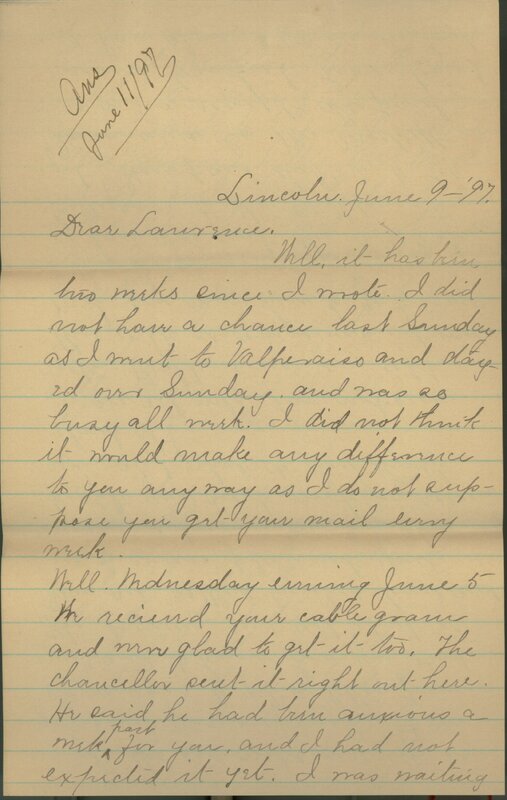 Ans
June 11/97
Lincoln. June 9-'97.
Dear Lawrence.
Well, it has been
two weeks since I wrote. I did
not have a chance last Sunday
as I went to Valparaiso and stay-
ed over Sunday. and was so
busy all week. I did not think
it would make any difference
to you any way as I do not sup-
pose you get your mail every
week.
Well. Wednesday evening June 5
We reciend your cable gram
and were glad to get it too. The
chancellor sent it right out here.
He said he had been anxious a
week past for you, and I had not
expected it yet. I was waiting